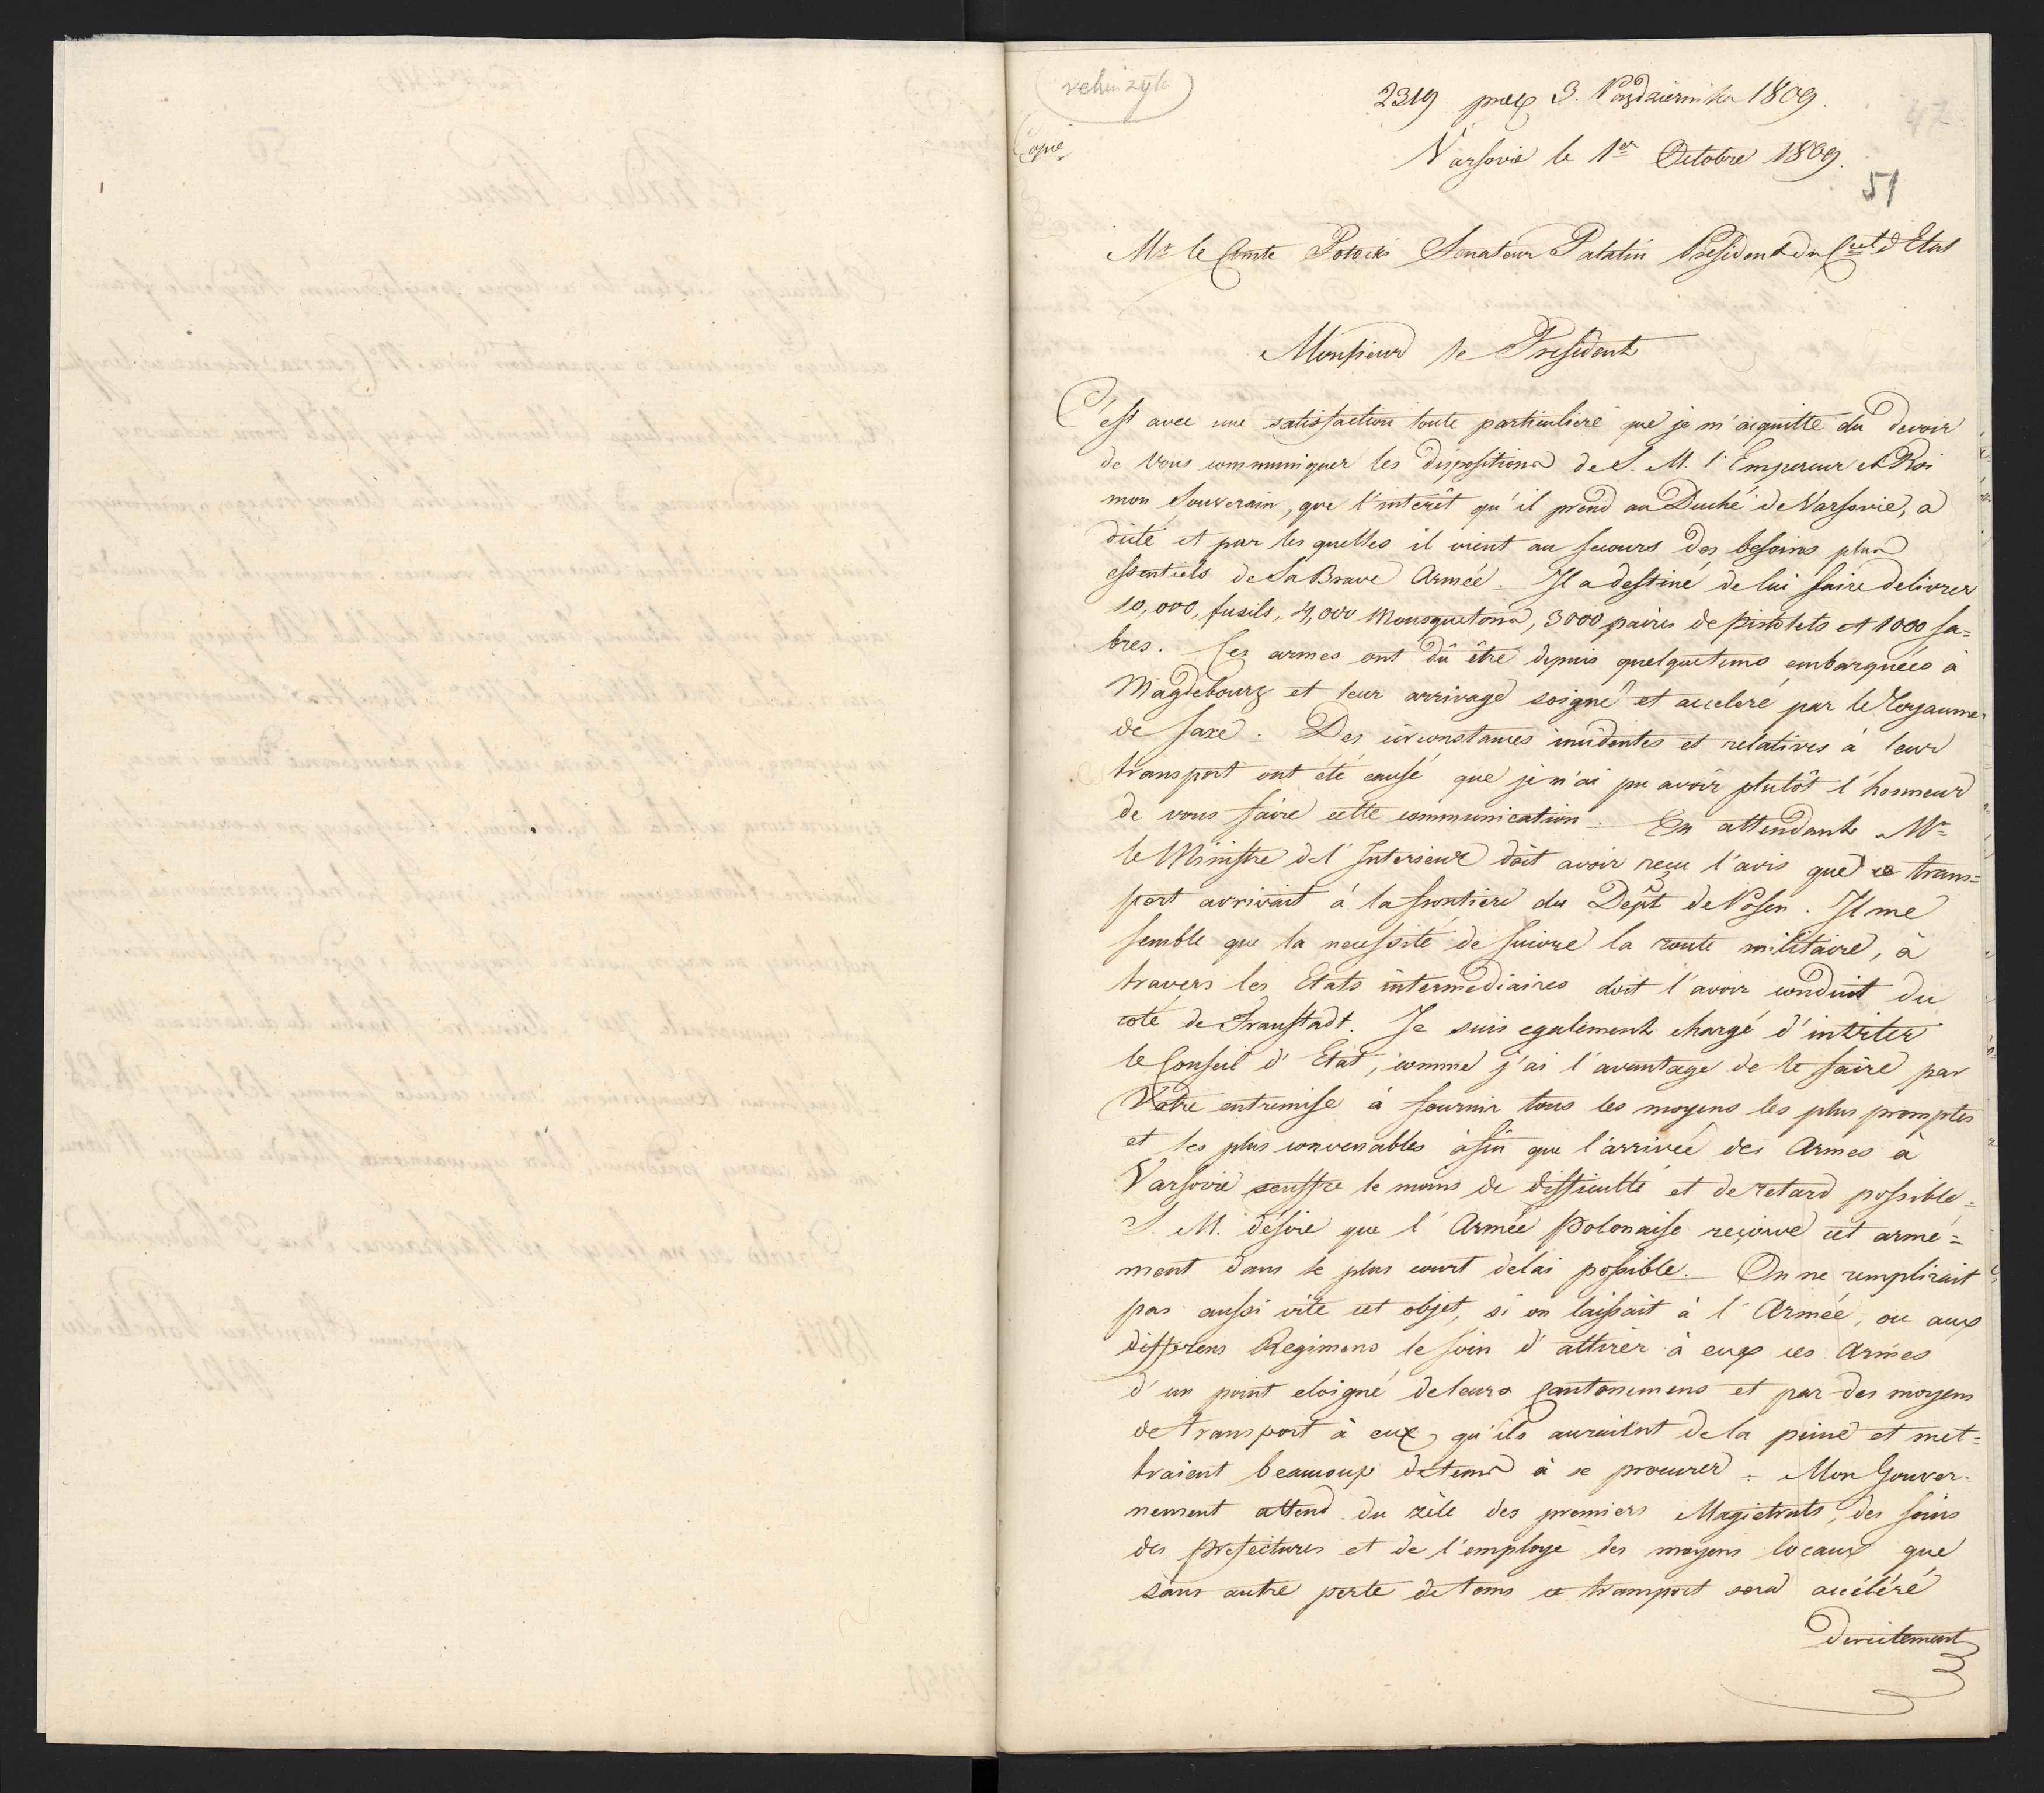 2319 prœs 3. Października 1809.
47
Copie
Varsovie le 1er Octobre 1809.
51
Mr le Comte Potocki Senateur Palatin President du Cseil d'Etat
Monsieur le President
C'est avec une satisfaction toute particuliere que je m'aquitte du devoir
de Vous communiquer les dispositions de S. M. l'Empereur et Roi
mon Souverain, que l'interêt qu'il prend au Duché de Varsovie, a
dicté et par les quelles il vient au secours des besoins plus
essentiels de Sa Brave Armée. Il a destiné de lui faire delivrer
10,000, fusils, 4,000 Mousquetons, 3000 paires de pistolets et 1000 sa=
bres. Ces armes ont dû être depuis quelque tems embarquées à
Magdebourg et leur arrivage soigné et acceleré par le Royaume
de Saxe. Des circonstances incidentes et relatives à leur
transport ont été cause que je n'ai pu avoir plutôt l'honneur
de vous faire cette communication. En attendant Mr
le Ministre de l'Interieur doit avoir reçu l'avis que ce trans=
port arrivait à la frontiere du Dept de Posen. Il me
semble que la necessité de suivre la route militaire, à
travers les Etats intermediaires doit l'avoir conduit du
coté de Fraustadt. Je suis egalement chargé d'inviter
le Conseil d'Etat, comme j'ai l'avantage de le faire par
Votre entremise à fournir tous les moyens les plus promptes
et les plus convenables àfin que l'arrivée des Armes à
Varsovie souffre le moins de difficulté et de retard possible.
S. M. désire que l'Armée Polonaise reçoive cet arme=
ment dans le plus court delai possible. On ne remplirait
pas aussi vite cet objet, si on laissait à l'Armée, ou aux
differens Regimens le soin d'attirer à eux ces Armes
d'un point eloigné de leurs Cantonemens et par des moyens
de transport à eux, qu'ils auraient de la peine et met=
traient beaucoup de tems à se procurer. Mon Gouver=
nement attend du zèle des premiers Magistrats, des soins
des Prefectures et de l'employe des moyens locaux que
sans autre perte de tems ce transport sera accéléré
directement